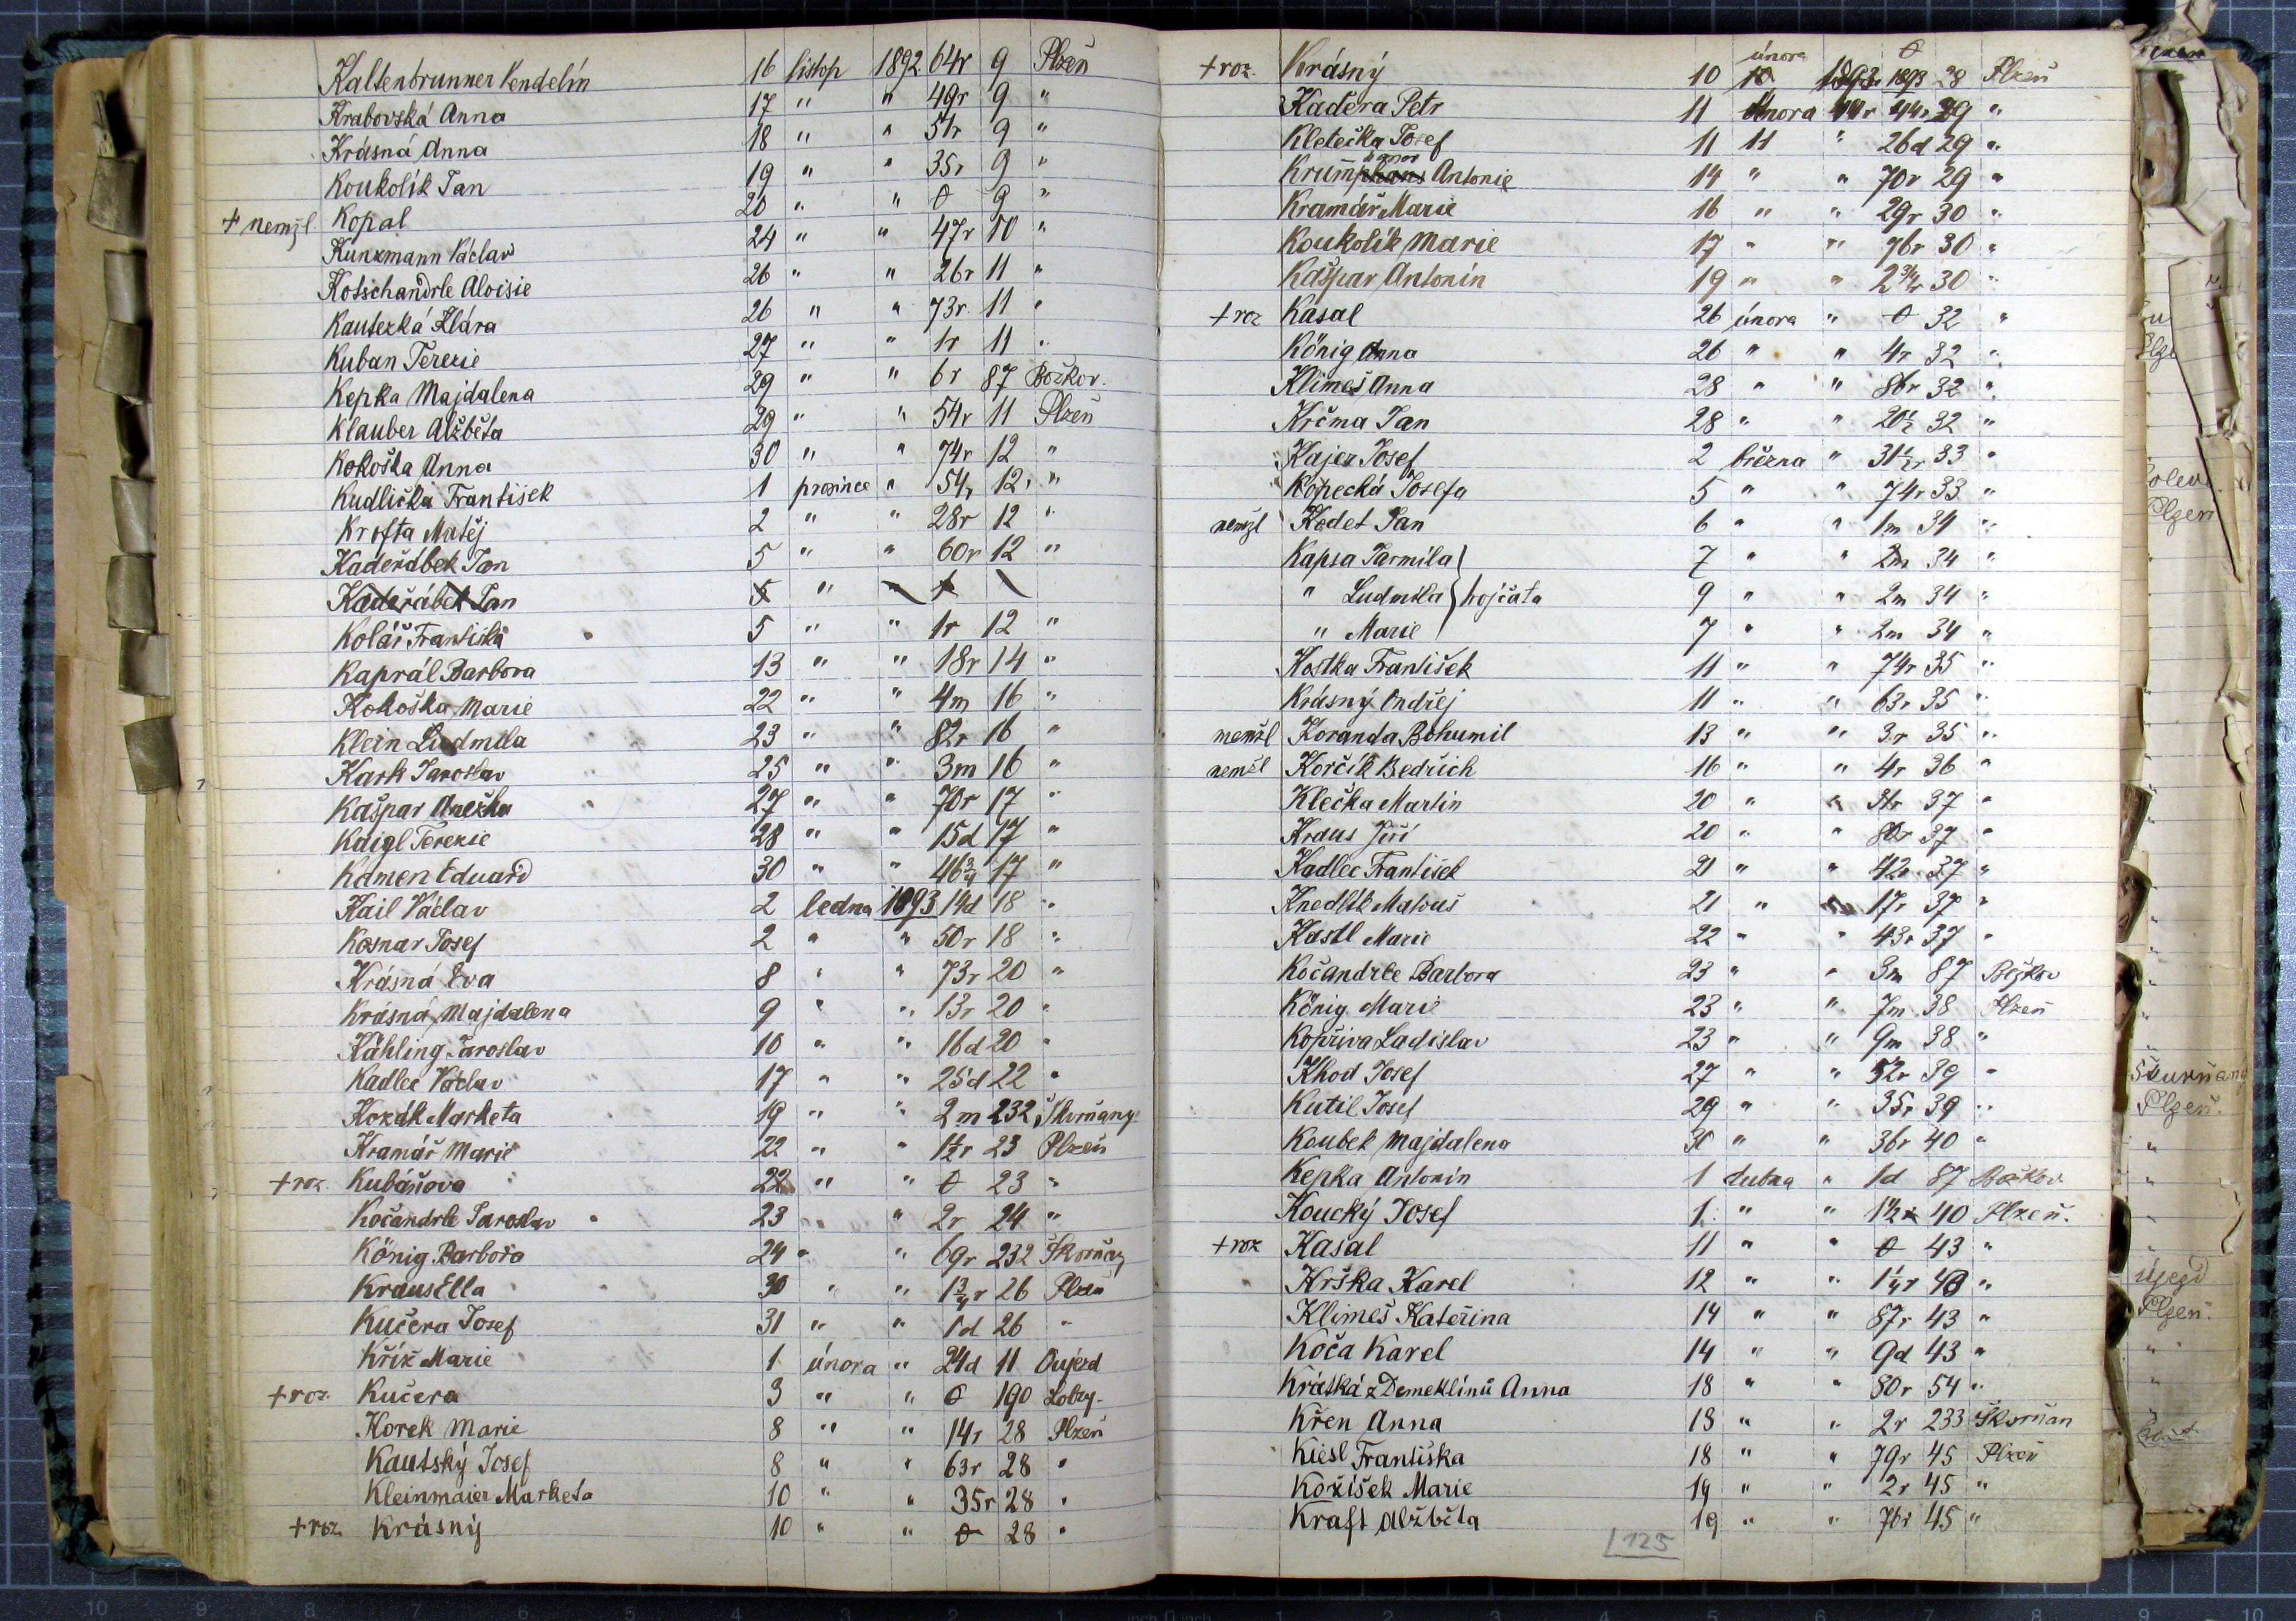 Kaltenbrunner Vendelín 16 listop 1892 64r 9 Plzeň
Krabovská Anna 17 " " 49r 9 "
Krásná Anna 18 " " 51r 9 "
Koukolík Jan 19 " " 35r 9 "
+ nemzl. Kopal 20 " " 0 9 "
Kunzmann Václav 24 " " 47r 10 "
Kotschandrle Aloisie 26 " " 26r 11 "
Kautezká Klára 26 " " 73r 11 "
Kuban Terezie 27 " " 1r 11 "
Kepka Majdalena 29 " " 6r 87 Božkov.
Klauber Alžběta 29 " " 54r 11 Plzeň
Kokoška Anna 30 " " 74r 12 "
Kudlička František 1 prosince " 54r 12 "
Krofta Matěj 2 " " 28r 12 "
Kadeřábek Jan 5 " " 60r 12 "
Kadeřábek Jan 5 "
Kolář Františka 5 " " 1r 12 "
Kaprál Barbora 13 " " 18r 14 "
Kokoška Marie 22 " " 4m 16 "
Klein Ludmila 23 " " 82r 16 "
Kark Jaroslav 25 " " 3m 16 "
Kašpar Anežka 27 " " 70r 17 "
Kaigl Terezie 28 " " 15d 17 "
Kamen Eduard 30 " " 46¾ 17 "
Kail Václav 2 ledna 1893 14d 18 "
Kosnar Josef 2 " " 50r 18 "
Krásná Eva 8 " " 73r 20 "
Krásná Majdalena 9 " " 13r 20 "
Kähling Jaroslav 10 " " 16d 20 "
Kadlec Václav 17 " " 25d 22 "
Kozák Marketa 19 " " 2m 232 Skvrňany
Kramář Marie 22 " " 1½r 23 Plzeň
+ roz. Kubáňova 22 " " 0 23 "
Kočandrle Jaroslav 23 " " 2r 24 "
König Barbora 24 " " 69r 232 Skvrňany
Kraus Ella 30 " " 1¾r 26 Plzeň
Kučera Josef 31 " " 1d 26 "
Kříž Marie 1 února " 24d 11 Oujezd
+ roz. Kučera 3 " " 0 190 Lobzy.
Korek Marie 8 " " 14r 28 Plzeň
Kautský Josef 8 " " 63r 28 "
Kleinmaier Marketa 10 " " 35r 28 "
+ roz. Krásný 10 " " 0 28 "
+ roz. Krásný 10 února 1893 0 28 Plzeň
Kaděra Petr 11 února 44r 29 "
Kletečka Josef 11 11 " 26d 29 "
Krump Antonie 14 " " 70r 29 "
Kramář Marie 16 " " 29r 30 "
Koukolík Marie 17 " " 76r 30 "
Kašpar Antonín 19 " " 2¾r 30 "
+ roz Kasal 26 února " 0 32 "
König Anna 26 " " 4r 32 "
Klimeš Anna 28 " " 86r 32 "
Krčma Jan 28 " " 20½ 32 "
Kajer Josef 2 března " 31½r 33 "
Kopecká Josefa 5 " " 74r 33 "
nemzl Kodet Jan 6 " " 1m 34 "
Kapsa Jarmila } 7 " " 2m 34 "
" Ludmila } trojčata 9 " " 2m 34 "
" Marie } 7 " " 2m 34 "
Kostka František 11 " " 74r 35 "
Krásný Ondřej 11 " " 63r 35 "
nemzl Koranda Bohumil 13 " " 3r 35 "
nemžl Korčík Bedřich 16 " " 4r 36 "
Klečka Martin 20 " " 31r 37 "
Kraus Jiří 20 " " 80r 37 "
Kadlec František 21 " " 42r 37 "
Knedlík Matouš 21 " 17r 37 "
Kastl Marie 22 " " 43r 37 "
Kočandrle Barbora 23 " " 3m 87 Božkov
König Marie 23 " " 7m 38 Plzeň
Kopřiva Ladislav 23 " " 9m 38 "
Khod Josef 27 " " 52r 39 "
Kutil Josef 29 " " 35r 39 "
Koubek Majdalena 30 " " 36r 40 "
Kepka Antonín 1 dubna " 1d 87 Božkov
Koucký Josef 1 " " 1½r 40 Plzeň.
+ roz Kasal 11 " " 0 43 "
Krška Karel 12 " " 1¼r 43 "
Klimeš Kateřina 14 " " 87r 43 "
Koča Karel 14 " " 9d 43 "
Krátká z Demeklínů Anna 18 " " 80r 54 "
Křen Anna 18 " " 2r 233 Skvrňan
Kiesl Františka 18 " " 79r 45 Plzeň
Kožíšek Marie 19 " " 2r 45 "
Kraft Alžběta 19 " " 76r 45 "
125
Plzen
Plzeň.
Újezd
Plzeň.